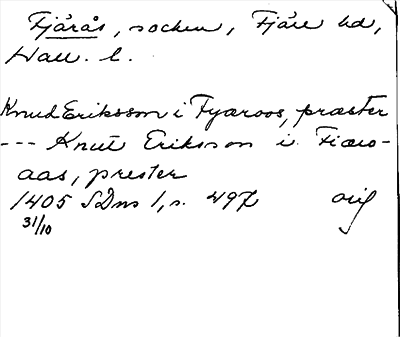 Fjärås, socken, Fjäre hd,
Hall. l.
Knud Eriksson i Fyæroos, præster
--- Knut Eriksson i Fiæro-
aas, prester
1405 SDns 1, s. 497 orig
31/10